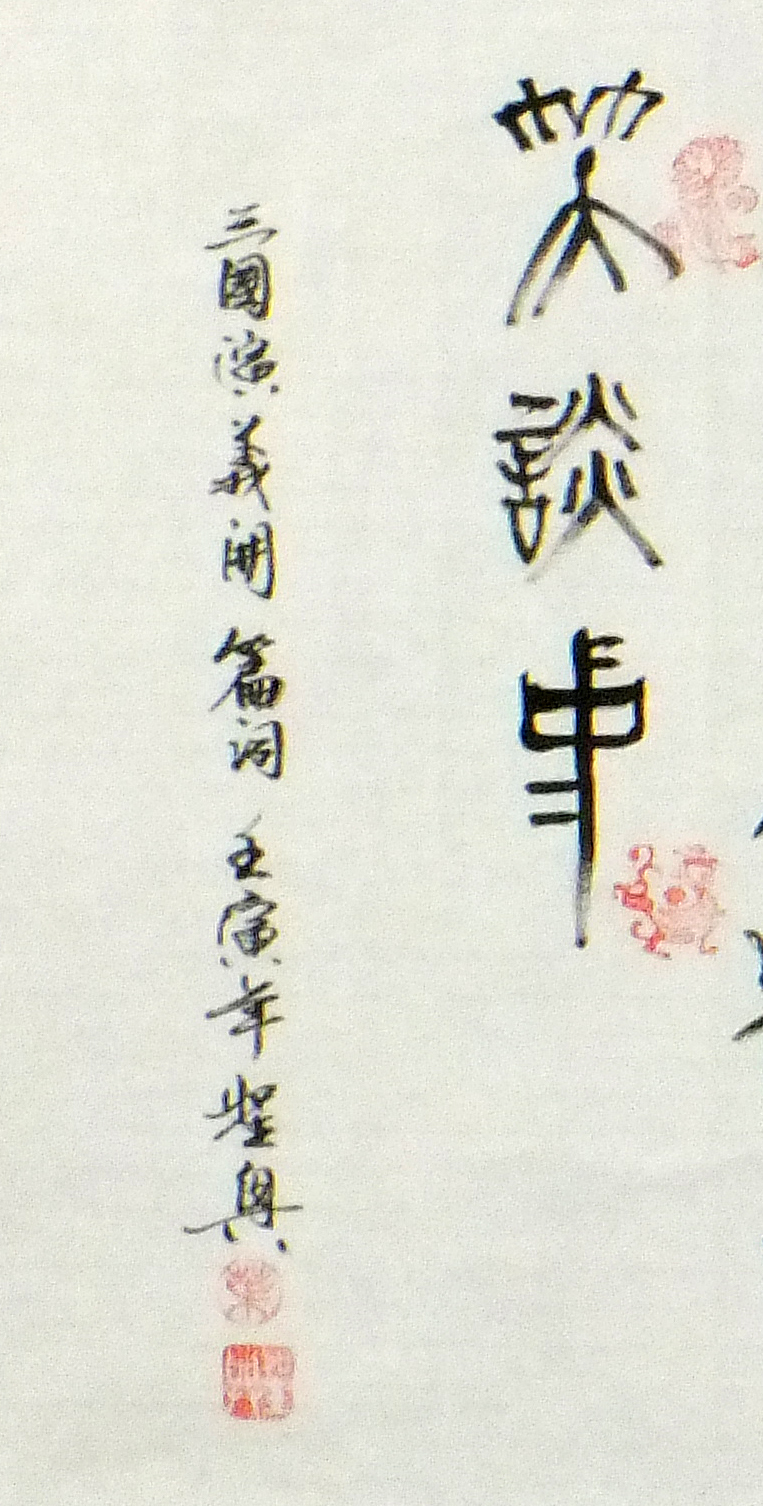 笑談中
三國演義開篇詞 壬寅年 聖興